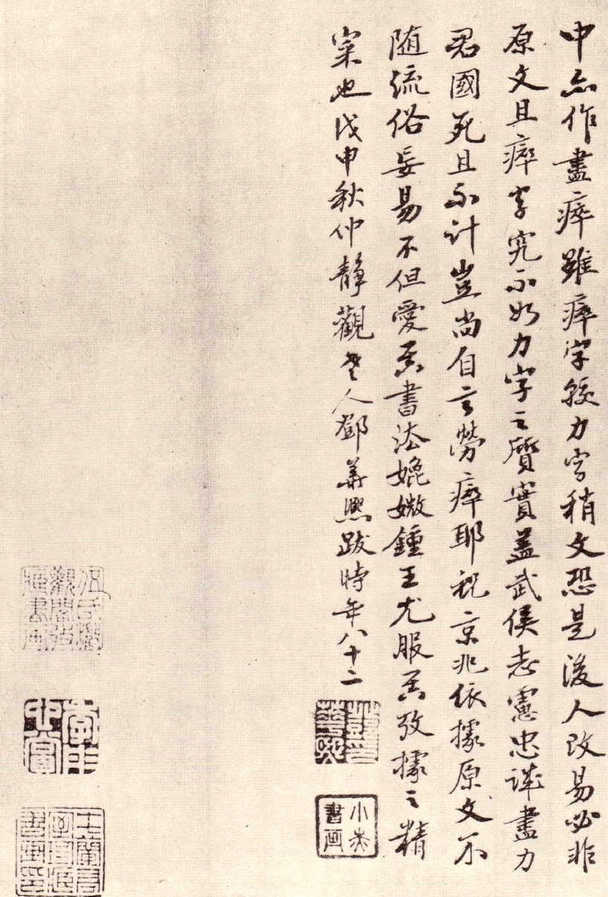 中亦作盡瘁雖瘁字較力字稍文恐是後人改易必非
原文且瘁字究不如力字之質實蓋武侯志憲忠謀盡力
君國死且不計豈尚自言勞瘁耶祝京兆依據原文不
隨流俗妄易不但愛其書法媲媺鍾王尤服其攷據之精
案也戊申秋仲靜觀老人鄧華熙跋時年八十二
鄧華熙
小赤
書画